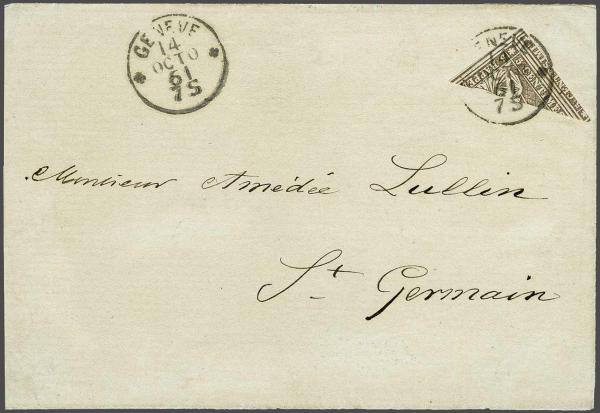 GENEVE
14
OCTO
61
7S
61
7S
Monsieur Amédée Lullin
St Germain